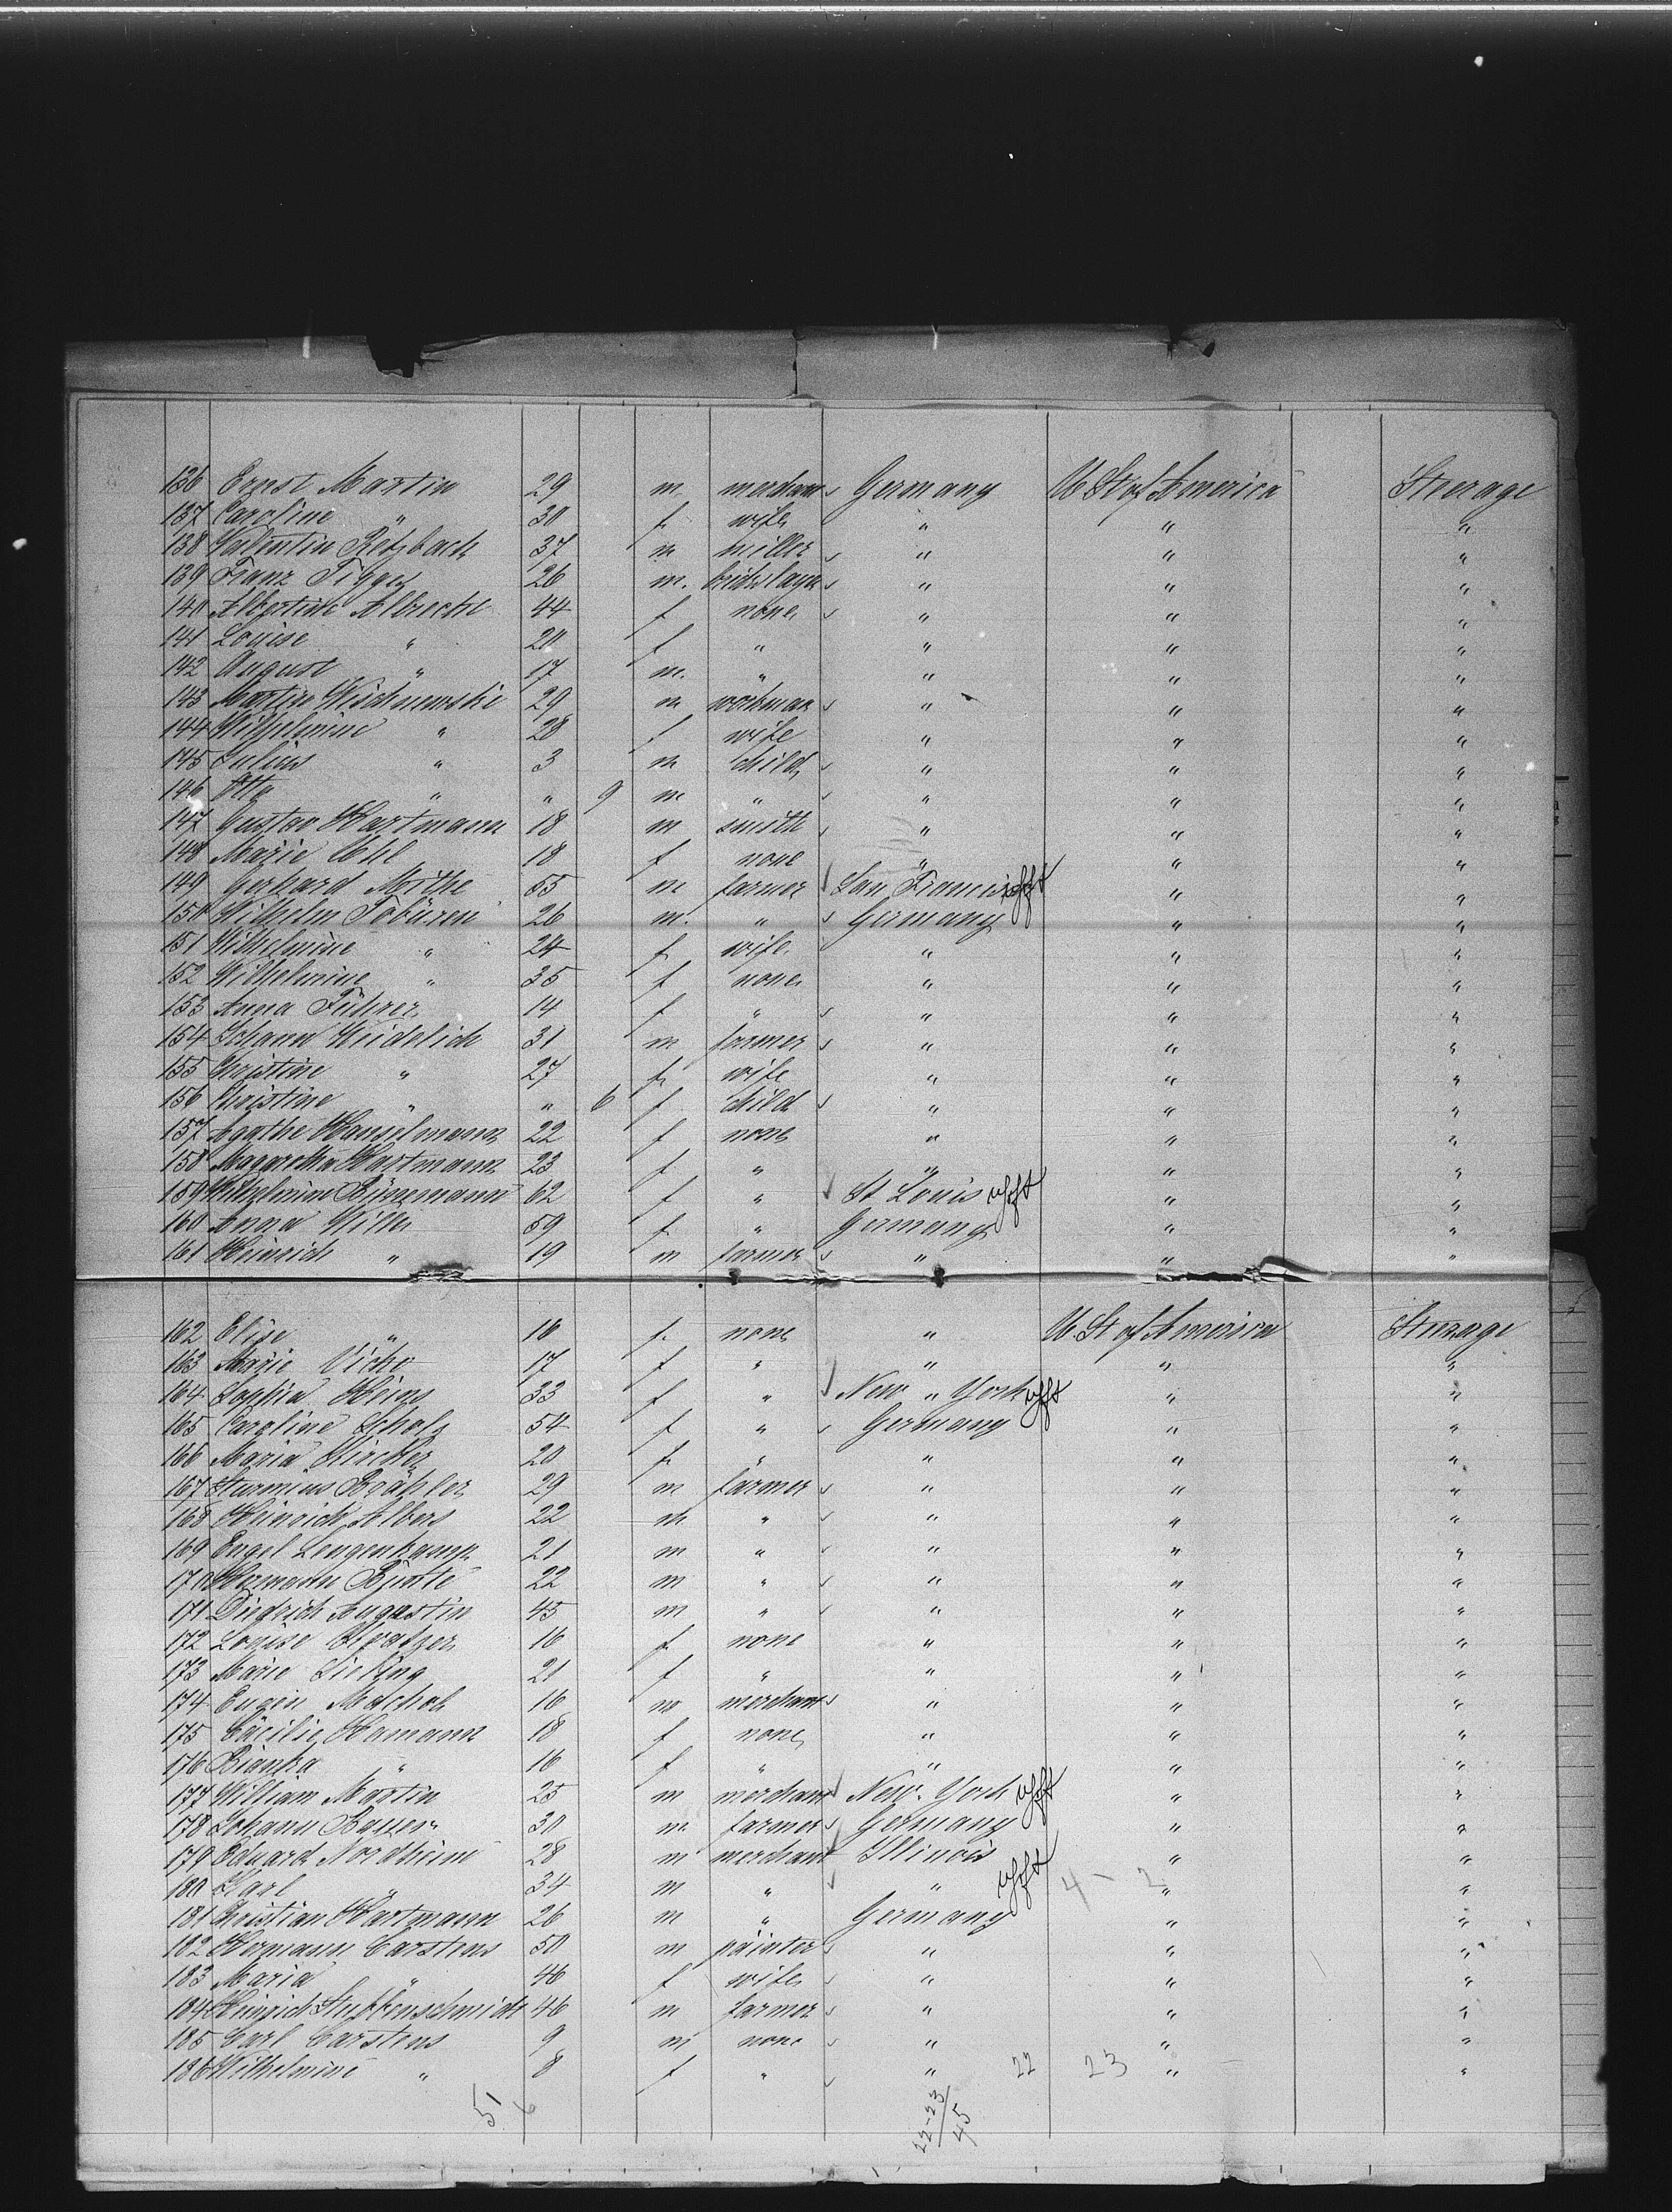 136 Ernst Martin 29 m merchant Germany U St of America Steerage
137 Caroline " 30 f wife " " "
138 Valentin Retzbach 37 m miller " " "
139 Franz Tigges 26 m. bricklayer " " "
140 Albertine Albrecht 44 f none " " "
141 Louise " 20 f " " " "
142 August " 17 m. " " " "
143 Martin Wischnewski 29 m workman " " "
144 Wilhelmine " 28 f wife " " "
145 Julius " 3 m child " " "
146 Otto " " 9 m " " " "
147 Gustav Hartmann 18 m smith " " "
148 Marie Uhl 18 f none " " "
149 Gerhard Mithe 55 m farmer San Francisco " "
150 Wilhelm Tobüren 26 m. " Germany " "
151 Wilhelmine " 24 f wife " " "
152 Wilhelmine " 35 f none " " "
153 Anna Führer 14 f " " " "
154 Johann Heidelich 31 m farmer " " "
155 Christine " 27 f wife " " "
156 Christine " " 6 f child " " "
157 Agathe Hanselmann 22 f none " " "
158 Magaretha Hartmann 23 f " " " "
159 Wilhelmine 62 f " St Louis " "
160 Anna 59 f " Germany " "
161 Heinrich " 19 m farmer " " "
162 Elise " 16 f none " U. St of America Steerage
163 Marie 17 f " " " "
164 Sophia Heins 33 f " New " York " "
165 Caroline Scholz 54 f " Germany " "
166 Maria 20 f " " " "
167 Sturmius Brähler 29 m farmer " " "
168 Heinrich Albers 22 m " " " "
169 Engel Lengenkamp 21 m " " " "
170 Hermann 22 m " " " "
171 Diedrich Augustin 45 m " " " "
172 Louise 16 f none " " "
173 Marie Sieking 21 f " " " "
174 Eugen Machol 16 m merchant " " "
175 Cäcilie Hamann 18 f none " " "
176 Bianka " 16 f " " " "
177 William Martin 25 m merchant New-York " "
178 Johann 30 m farmer Germany " "
179 Eduard Nordheim 28 m merchant Illinois " "
180 Karl " 34 m " " 4 - 2 " "
181 Christian Hartmann 26 m " Germany " "
182 Hermann Carstens 50 m painter " " "
183 Maria " 46 f wife " " "
184 Heinrich 46 m farmer " " "
185 Carl Carstens 9 m none " " "
186 Wilhelmine " 8 f " " 22 23 " "
51 6
22-23
45